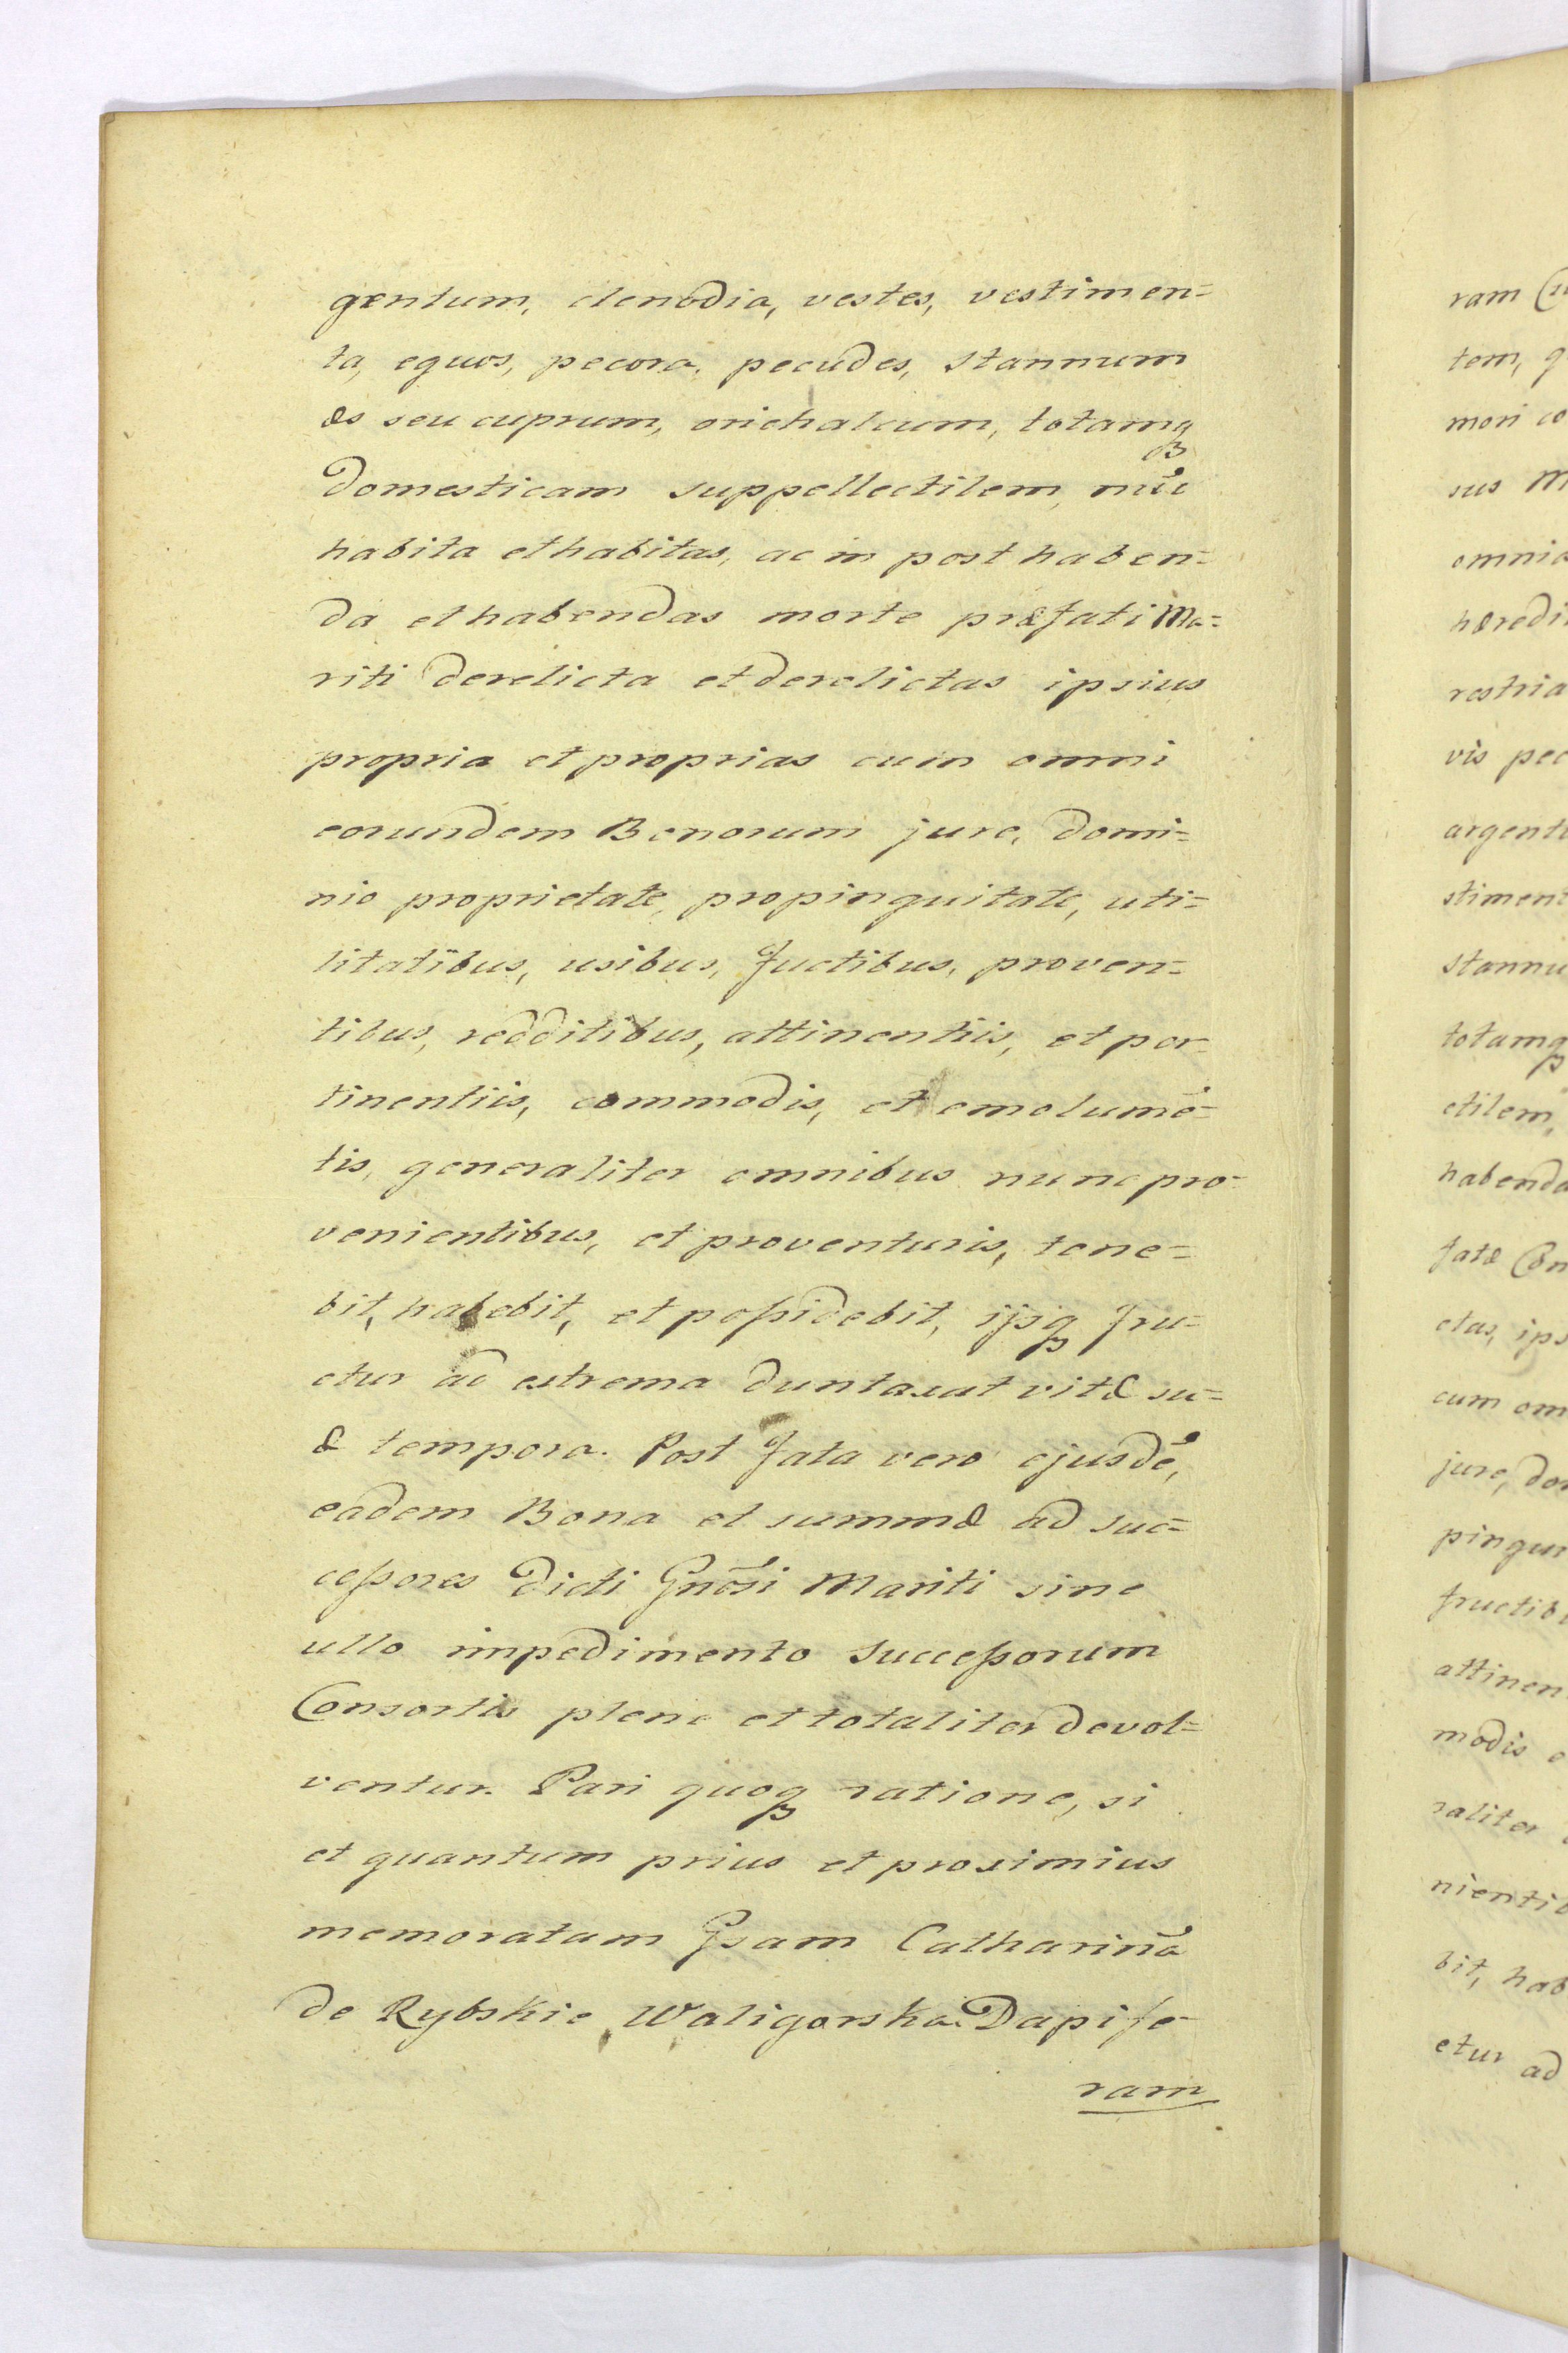 gentum, clenodia, vestes, vestimen=
ta, equos, pecora, pecudes, stannum
æs seu cuprum, orichalcum, totamq3
domesticam suppellectilem,
habita et habitas, ac in post haben=
da et habendas morte præfati Ma=
riti derelicta et derelictas ipsius
propria et proprias cum omni
eorundem Bonorum jure, domi=
nio proprietate, propinquitate, uti=
litatibus, usibus, fuctibus, proven=
tibus, redditibus, attinentiis, et per-
tinentiis, commodis, et emolumē=
tis, generaliter omnibus nunc pro-
venientibus, et proventuris, tene=
bit, habebit, et poßidebit, ijsq3 fru=
etur ad extrema duntaxat vitæ su=
æ tempora. Post fata vero ejusdē,
eadem Bona et summæ ad suc=
ceßores dicti Gnōsi Mariti sine
ullo impedimento succeßorum
Consortis plene et totaliter devol=
ventur. Pari quoq3 ratione, si
et quantum prius et proximius
memoratam Gsam Catharinā
de Rybskie Waligorska Dapife-
ram
ram
tem, q
mori co
sus M
omnia
hæredi
restria
vis pec
argent
stiment
stannu
totamq3
ctilem,
habenda
fatæ Con
ctas, ips
cum om
jure, do
pinqui
fructib
attinen
modis e
raliter
nientib
bit, hab
etur ad